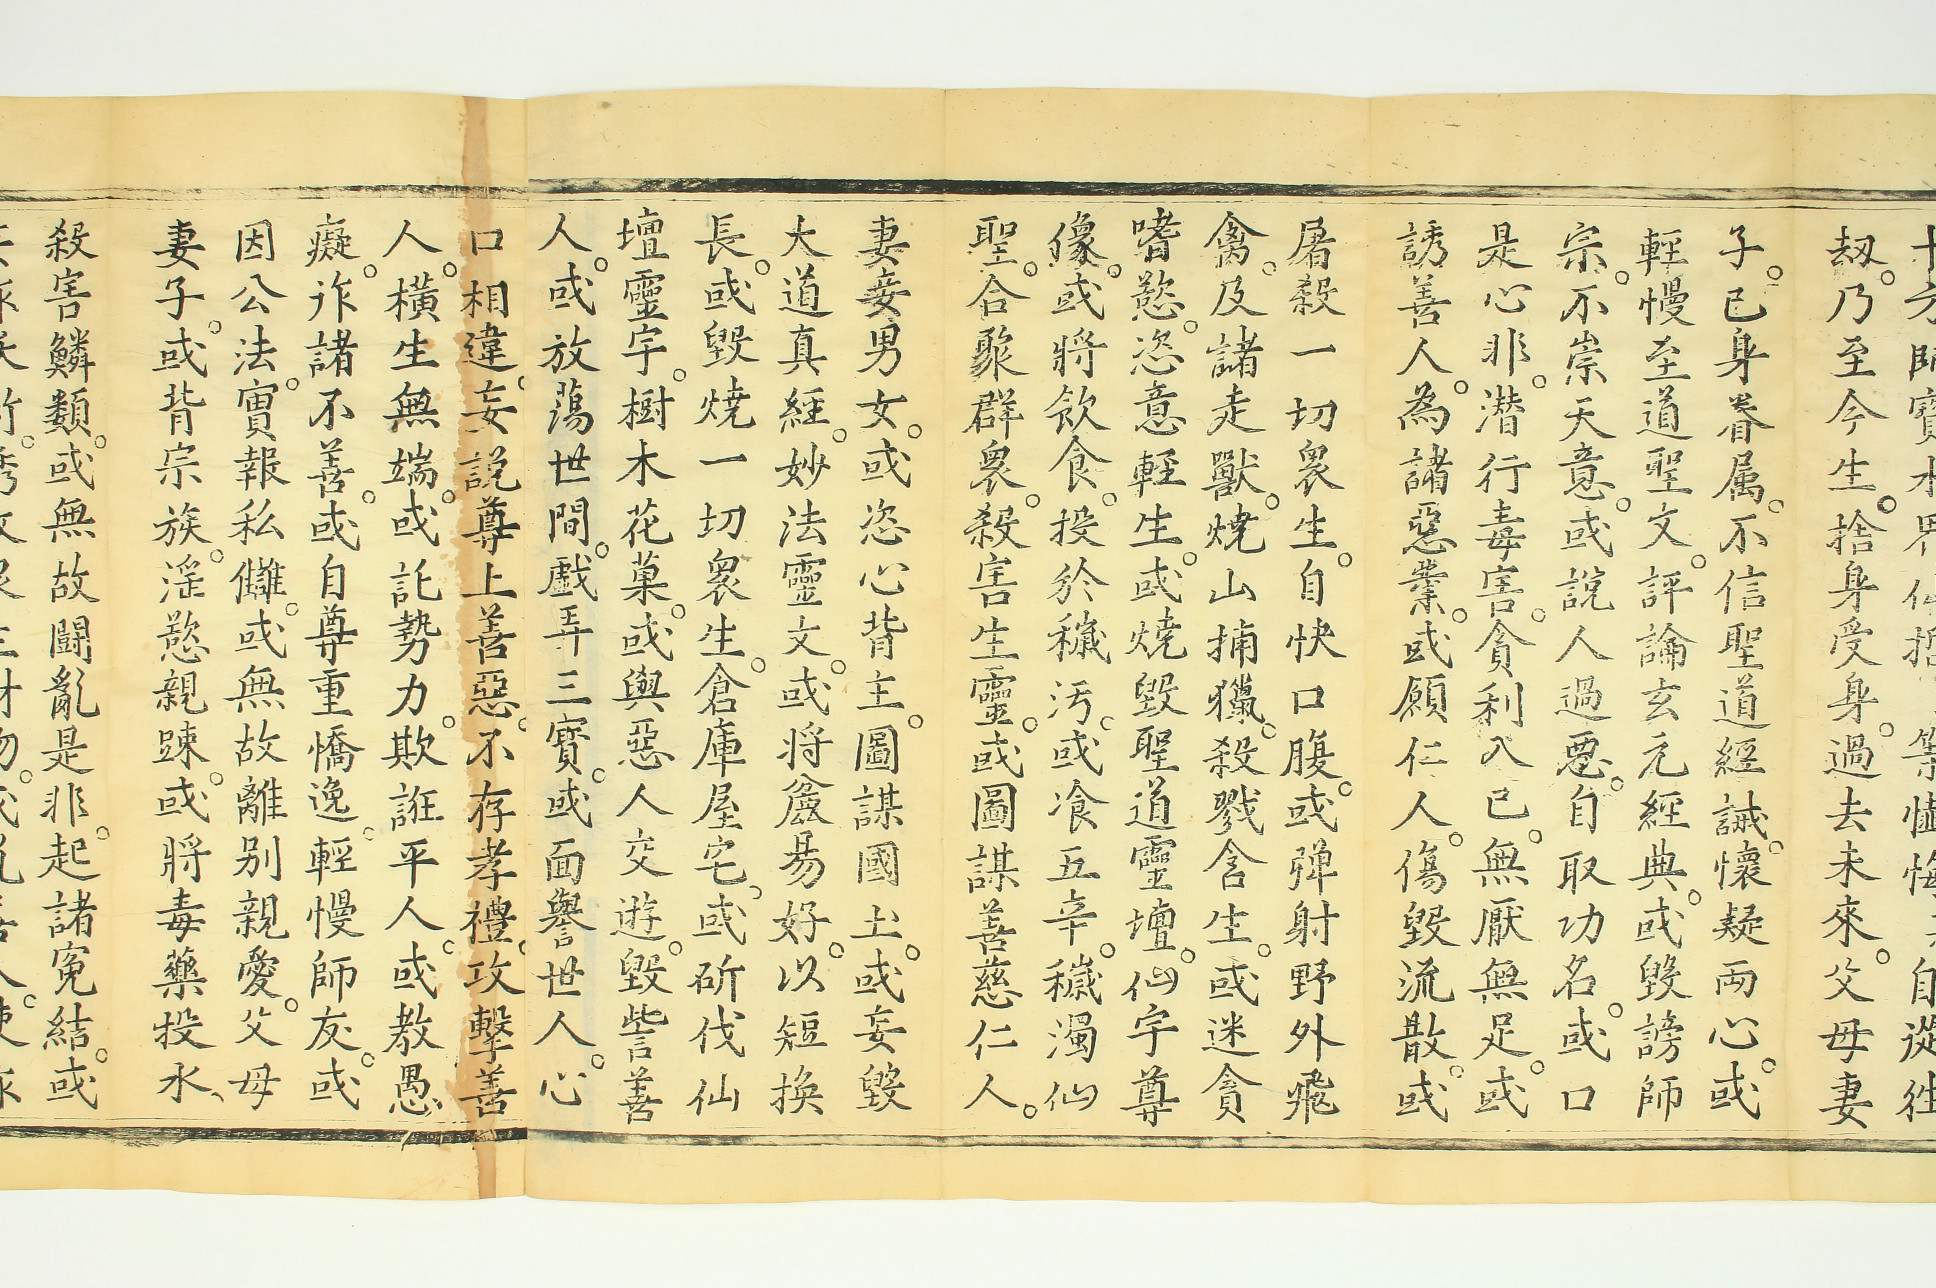 十方師寶水界仙哲等懺悔自從往
劫。乃至今生。捨身受身。過去未來。父母妻
子。已身眷属。不信聖道經誡。懷疑两心。或
輕慢至道聖文。評論玄元經典。或毀謗師
宗。不崇天意。或說人過惡。自取功名。或口
是心非。潜行毒害。貪利入已。無厭無足。或
誘善人。為諸惡業。或願仁人。傷毀流散。或
屠殺一切衆生。自快口腹。或弹射野外飛
禽。及諸走獸。燒山捕獵。殺戮含生。或迷貪
嗜慾。恣意輕生。或燒毀聖道靈壇。仙宇尊
像。或將飲食。投於穢汚。或飡五辛。穢濁仙
聖。合聚群衆。殺害生靈。或圖謀善慈仁人。
妻妾男女。或恣心背主。圖謀國土。或妄毀
大道真經。妙法靈文。或將麄易好。以短換
長。或毀燒一切衆生。倉庫屋宅。或斫伐仙
壇靈宇。樹木花菓。或與惡人交遊。毀訾善
人。或放蕩世間。戲弄三寳。或面譽世人。心
口相違。妄說尊上善惡。不存孝禮。攻擊善
人。橫生無端。或託勢力。欺誑平人。或教愚
癡。作諸不善。或自尊重憍逸。輕慢師友。或
因公法。實報私讎。或無故離别親愛。父母
妻子。或背宗族。淫慾親踈。或將毒藥投水、
殺害鱗類。或無故鬪亂是非。起諸寃結。或